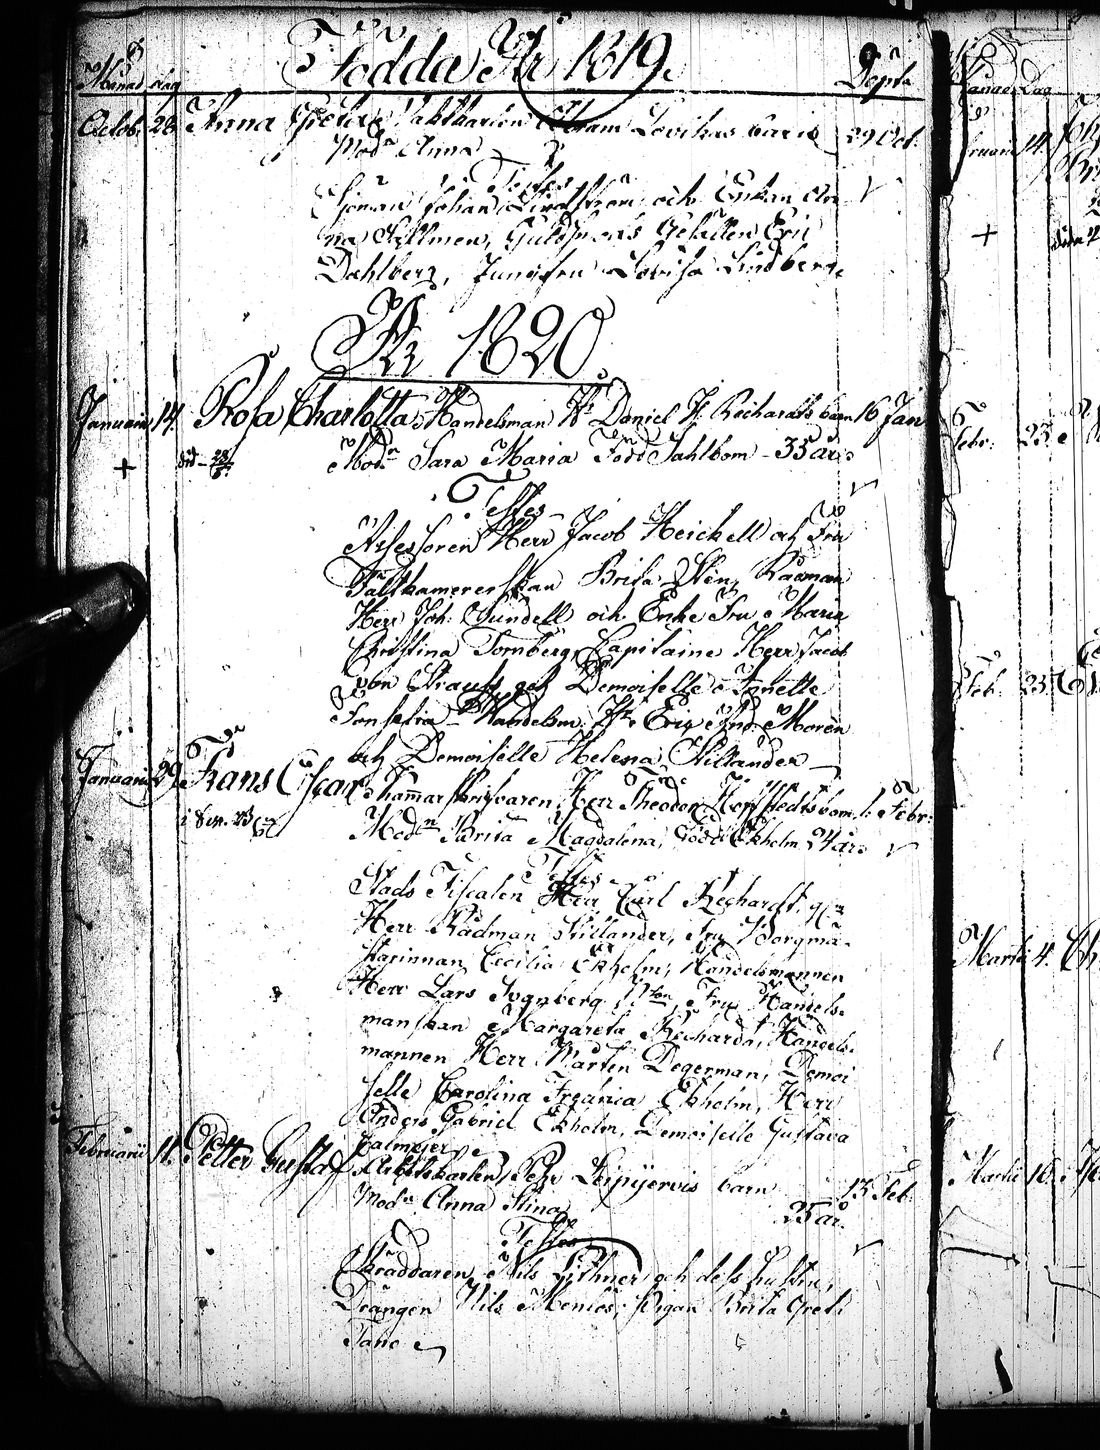 Födda År 1819.
Månad dag Döpta
Octob. 28. Anna Greta, Vaktkarlen Abram Lovikas barn 29 Oct.
Modn Anna
Testes
Sjöman Johan Lindström och Enkan An-
na Hellmen, Guldsmeds Gesällen Eric
Dahlberg, Jungfru Lovisa Lindberg
År 1820
Januarii 14. Rosa Charlotta, Handelsman Hr Daniel Fr. Reichardts barn 16 Jan
+ död 28/5 Modn Sara Maria Född Sahlbom - 35 år
Testes
Assessoren Herr Jacob Heickell och Fru
Fältkamererskan Brita Stén, Rådman
Herr Joh. Sundell och Enke Fru Maria
Christina Tornberg, Capitaine Herr Jacob
von Strauss och Demoiselle Annette
Handelsm. Hr Eric And. Morén
och Demoiselle Helena Stillander
Januarii 29. Frans Oscar, Kammarskrifvaren Herr Theodor Hoffstedts barn 1. Febr.
Modn Brita Magdalena, född Ekholm 24 år
Testes
Stads Fiscalen Herr Carl Rechardt, och
Herr Rådman Stillander, Fru Borgmä-
starinnan Cecilia Ekholm, Handelsmannen
Herr Lars Svanberg, Fru Handels-
manskan Margareta Rechardt, Handels-
mannen Herr Mårten Degerman, Demoi
selle Carolina Fredrica Ekholm, Herr
Anders Gabriel Ekholm, Demoiselle Gustava
Falmejer
Februarii 11. Petter Gustaf, Arbetskarlen Pehr Leipijervis barn 13 Feb.
Modn Anna Stina 25 år.
Testes
Skräddaren Nils Lithner och dess hustru,
Drängen Nils Menlös, Pigan Brita Gret.
Tano
Januar Dag
Februarii 14.
+
Febr. 23.
Feb. 23.
Martii 4.
Martii 16.